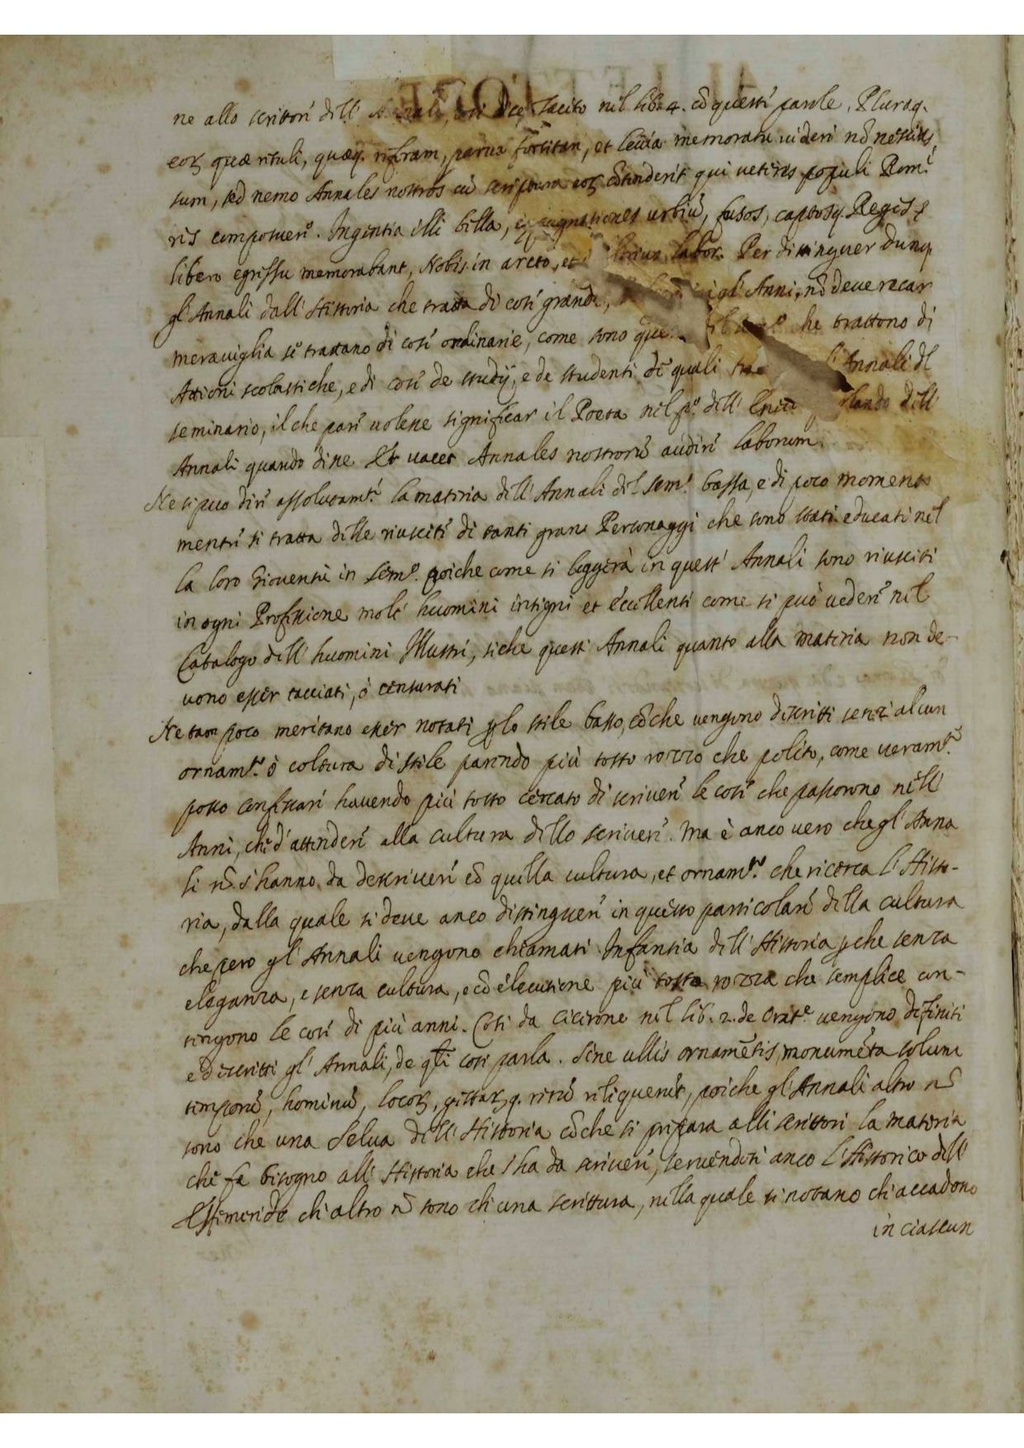 ne allo scrittori dell' Annali, così dice Tacito nel lib. 4. cō questi parole, Pluraq.
eoꝝ quæ retuli, quæq. referam, parua forsitan, et leuia memoratu uideri nō nescius
sum, sed nemo Annales nostros cū scriptura eoꝝ cōtenderit qui ueteres populi Rom.
res composuere. Ingentia illi bella, expugnationes urbiū, fusos, captosq. Reges
libero egressu memorabant, Nobis in arcto, et labor. Per distinguer dunq.
gl'Annali dall'Historia che tratta di cose grandi, gl'Anni, nō deue recar
merauiglia se trattano di cose ordinarie, come sono che trattono di
Attioni scolastiche, e di cose de studij, e de studenti de quali l'Annali del
seminario, il che pare uolesse significar il Poeta nel p.º dell' parlando dell'
Annali quando disse Et uacet Annales nostrorū audire laborum.
Ne si puo dire assolutam.te la materia dell'Annali del sem.º bassa, e di poco momento
mentre si tratta delle riuscite di tanti gran Personaggi che sono stati educati nel
la loro Giouentù in Sem.º poiche come si leggerà in questi Annali sono riusciti
in ogni Professione molti huomini insigni et eccellenti come si può uedere nel
Catalogo dell'huomini Illustri, siche questi Annali quanto alla materia non de-
uono esser tacciati, ò censurati
Ne tam poco meritano esser notati p lo stile basso, cō che uengono descritti senza alcun
ornam.to ò coltura di stile parendo più tosto rozzo che polito, come ueram.te
posso confessare hauendo più tosto cercato di scriuere le cose che passorono nell'
Anni, che d'attendere alla cultura dello scriuere. Ma è anco uero che gl'Anna
li nō s'hanno da descriuere cō quella cultura, et ornam.to che ricerca l'Histo-
ria, dalla quale si deue anco distinguere in questo particolare della cultura
che pero gl'Annali uengono chiamati Infantia dell'Historia p che senza
eleganza, e senza cultura, e cō elecutione più tosto rozza che semplice con-
tengono le cose di più anni. Così da Cicerone nel lib. 2. de Orat.e uengono definiti
e descritti gl'Annali, de qli così parla. Sine ullis ornamētis, monumēta solum
temporū, hominū, locoꝝ, gestaꝝq. rerū reliquerūt, poiche gl'Annali altro nō
sono che una Selua dell'Historia cō che si prepara alli scrittori la materia
che fa bisogno all'Historia che s'ha da scriuere, seruendosi anco l'Historico dell'
Effemeride che altro nō sono che una scrittura, nella quale si notano che accadono
in ciascun